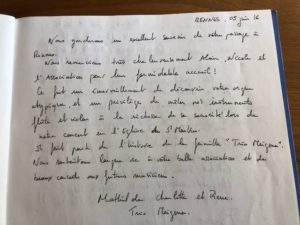 RENNES, 05 juin 16
Nous garderons un excellent souvenir de notre passage à
Rennes.
Nous remercions très chaleureusement Alain, Nicole et
l'Association pour leur formidable accueil!
Ce fut un émerveillement de découvrir votre orgue
atypique et un privilège de mêler nos instruments
flûte et violon à la richesse de sa sonorité lors de
notre concert en l'Eglise St
Il fait partie de l'histoire de la famille "Trio Meigma".
Nous souhaitons longue vie à votre belle association et de
beaux concerts aux futurs musiciens.
Mathilde, Charlotte et Pierre
Trio